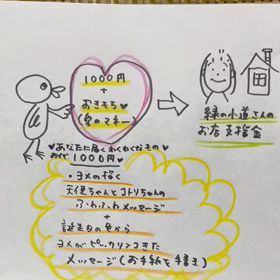 1000円
+
おきもち♥
(愛のマネー)
緑の小道さんの
お店支援金
♥あなたに届くわくわくなもの♥
お代 1000円♥
・ヨメの描く
天使ちゃんとコトリちゃんの
ふわふわメッセージ
+
誕生日の色から
ヨメがピッカリンコきた
メッセージ(お手紙を書き)